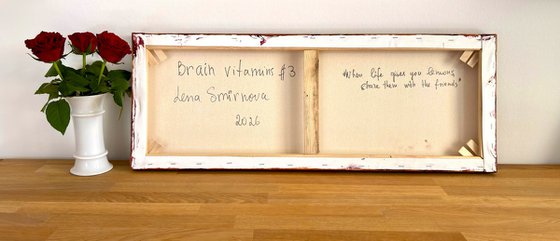 Brain vitamins #3
Lena Smirnova
2026
"When life gives you lemons,
share them with the friends"